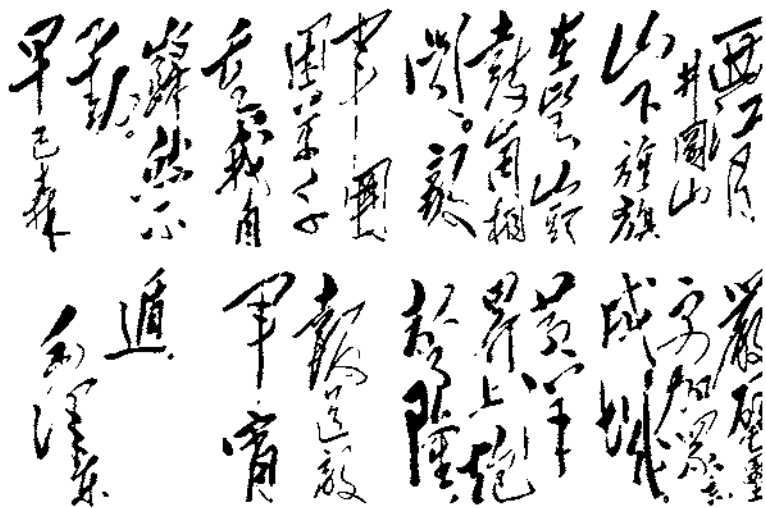 西江月
井岡山
山下旌旗
在望山頭
鼓角相
聞。敵
軍圍
困萬千
重我自
巋然不
動。
早已森
嚴壁壘
更加眾志
成城。
黃洋
界上炮
聲隆
報道敵
軍宵
遁
毛澤東